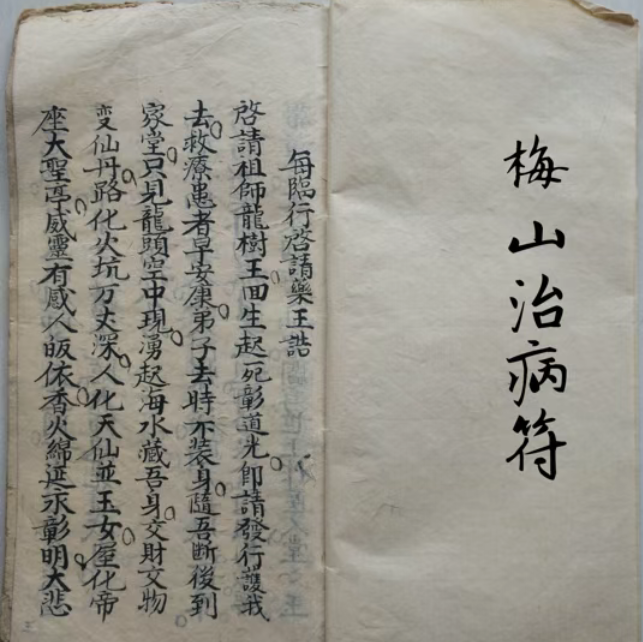 梅山治病符
每臨行啓請藥王誥
啓請祖師龍樹王回生起死彰道光即請發行護我
去救療患者早安康弟子去時不裝身隨吾斷後到
家堂只見龍頭空中現湧起海水藏吾身交財交物
变仙丹路化火坑万丈深人化天仙並玉女屋化帝
座大聖亭威靈有感人皈依香火綿延永彰明大悲